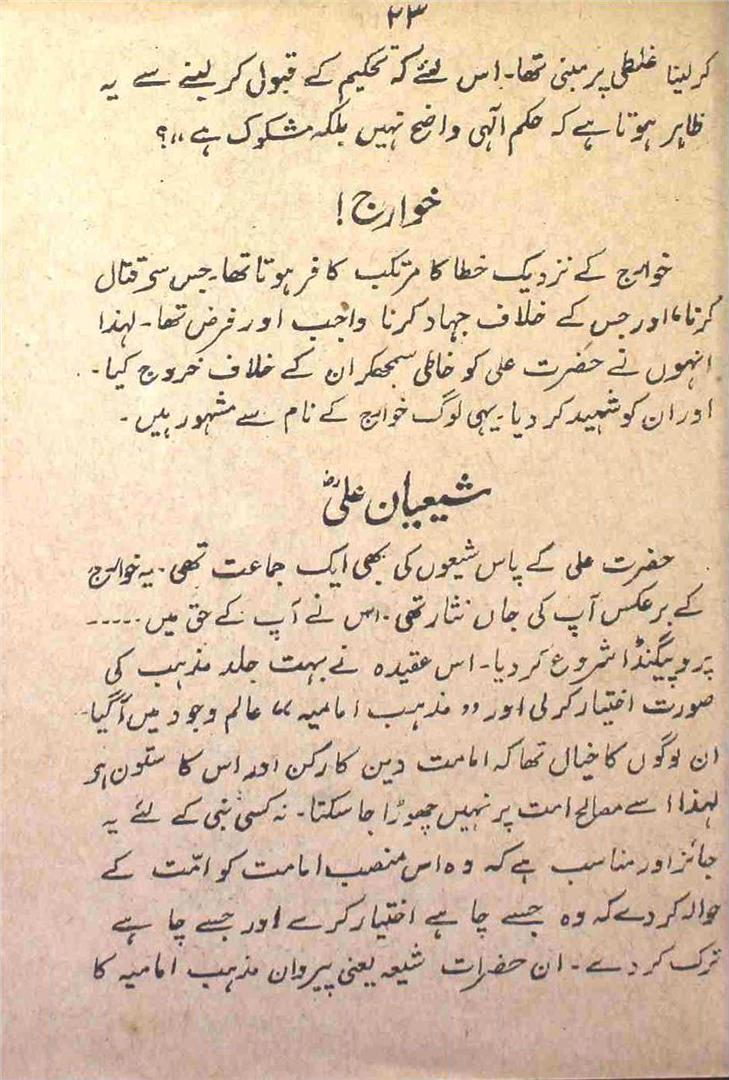 ۲۳
کر لینا غلطی پر مبنی تھا۔ اس لئے کہ تحکیم کے قبول کر لینے سے یہ
ظاہر ہوتا ہے کہ حکم الٰہی واضح نہیں بلکہ مشکوک ہے،،؟
خوارج!
خوارج کے نزدیک خطا کا مرتکب کافر ہوتا تھا۔ جس سے قتال
کرنا، اور جس کے خلاف جہاد کرنا واجب اور فرض تھا۔ لہذا
انہوں نے حضرت علی کو خاطی سمجھکر ان کے خلاف خروج کیا۔
اور ان کو شہید کر دیا۔ یہی لوگ خوارج کے نام سے مشہور ہیں۔
شیعیان علیؓ
حضرت علی کے پاس شیعوں کی بھی ایک جماعت تھی۔ یہ خوارج
کے برعکس آپ کی جاں نثار تھی۔ اس نے آپ کے حق میں ۔۔۔۔۔
پروپیگنڈا شروع کر دیا۔ اس عقیدہ نے بہت جلد مذہب کی
صورت اختیار کر لی اور ,,مذہب امامیہ،، عالم وجود میں آگیا۔
ان لوگوں کا خیال تھا کہ امامت دین کا رکن اور اس کا ستون ہے
لہذا اسے مصالح امت پر نہیں چھوڑا جا سکتا۔ نہ کسی نبی کے لئے یہ
جائز اور مناسب ہے کہ وہ اس منصب امامت کو امّت کے
حوالہ کر دے کہ وہ جسے چاہے اختیار کرے اور جسے چاہے
ترک کر دے۔ ان حضرات شیعہ یعنی پیروان مذہب امامیہ کا